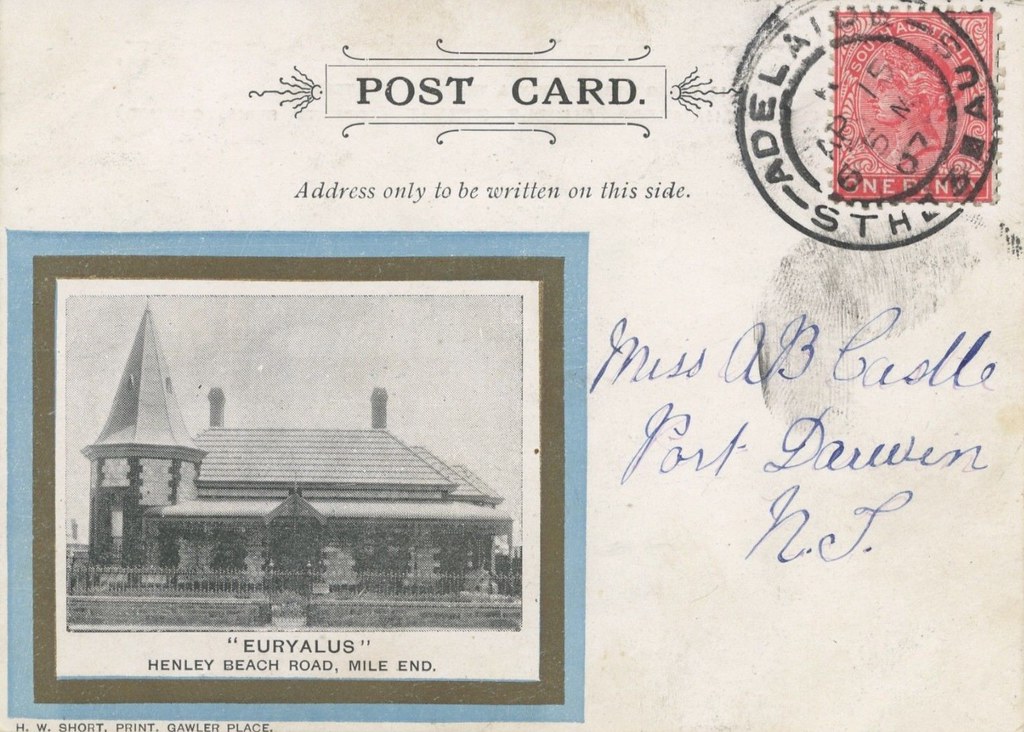 POST CARD.
ADELAIDE
STH AUS
SOUTH AUSTRALIA
ONE PENNY
Address only to be written on this side.
Miss AB Castle
Port Darwin
N.T.
"EURYALUS"
HENLEY BEACH ROAD, MILE END.
H. W. SHORT, PRINT, GAWLER PLACE.